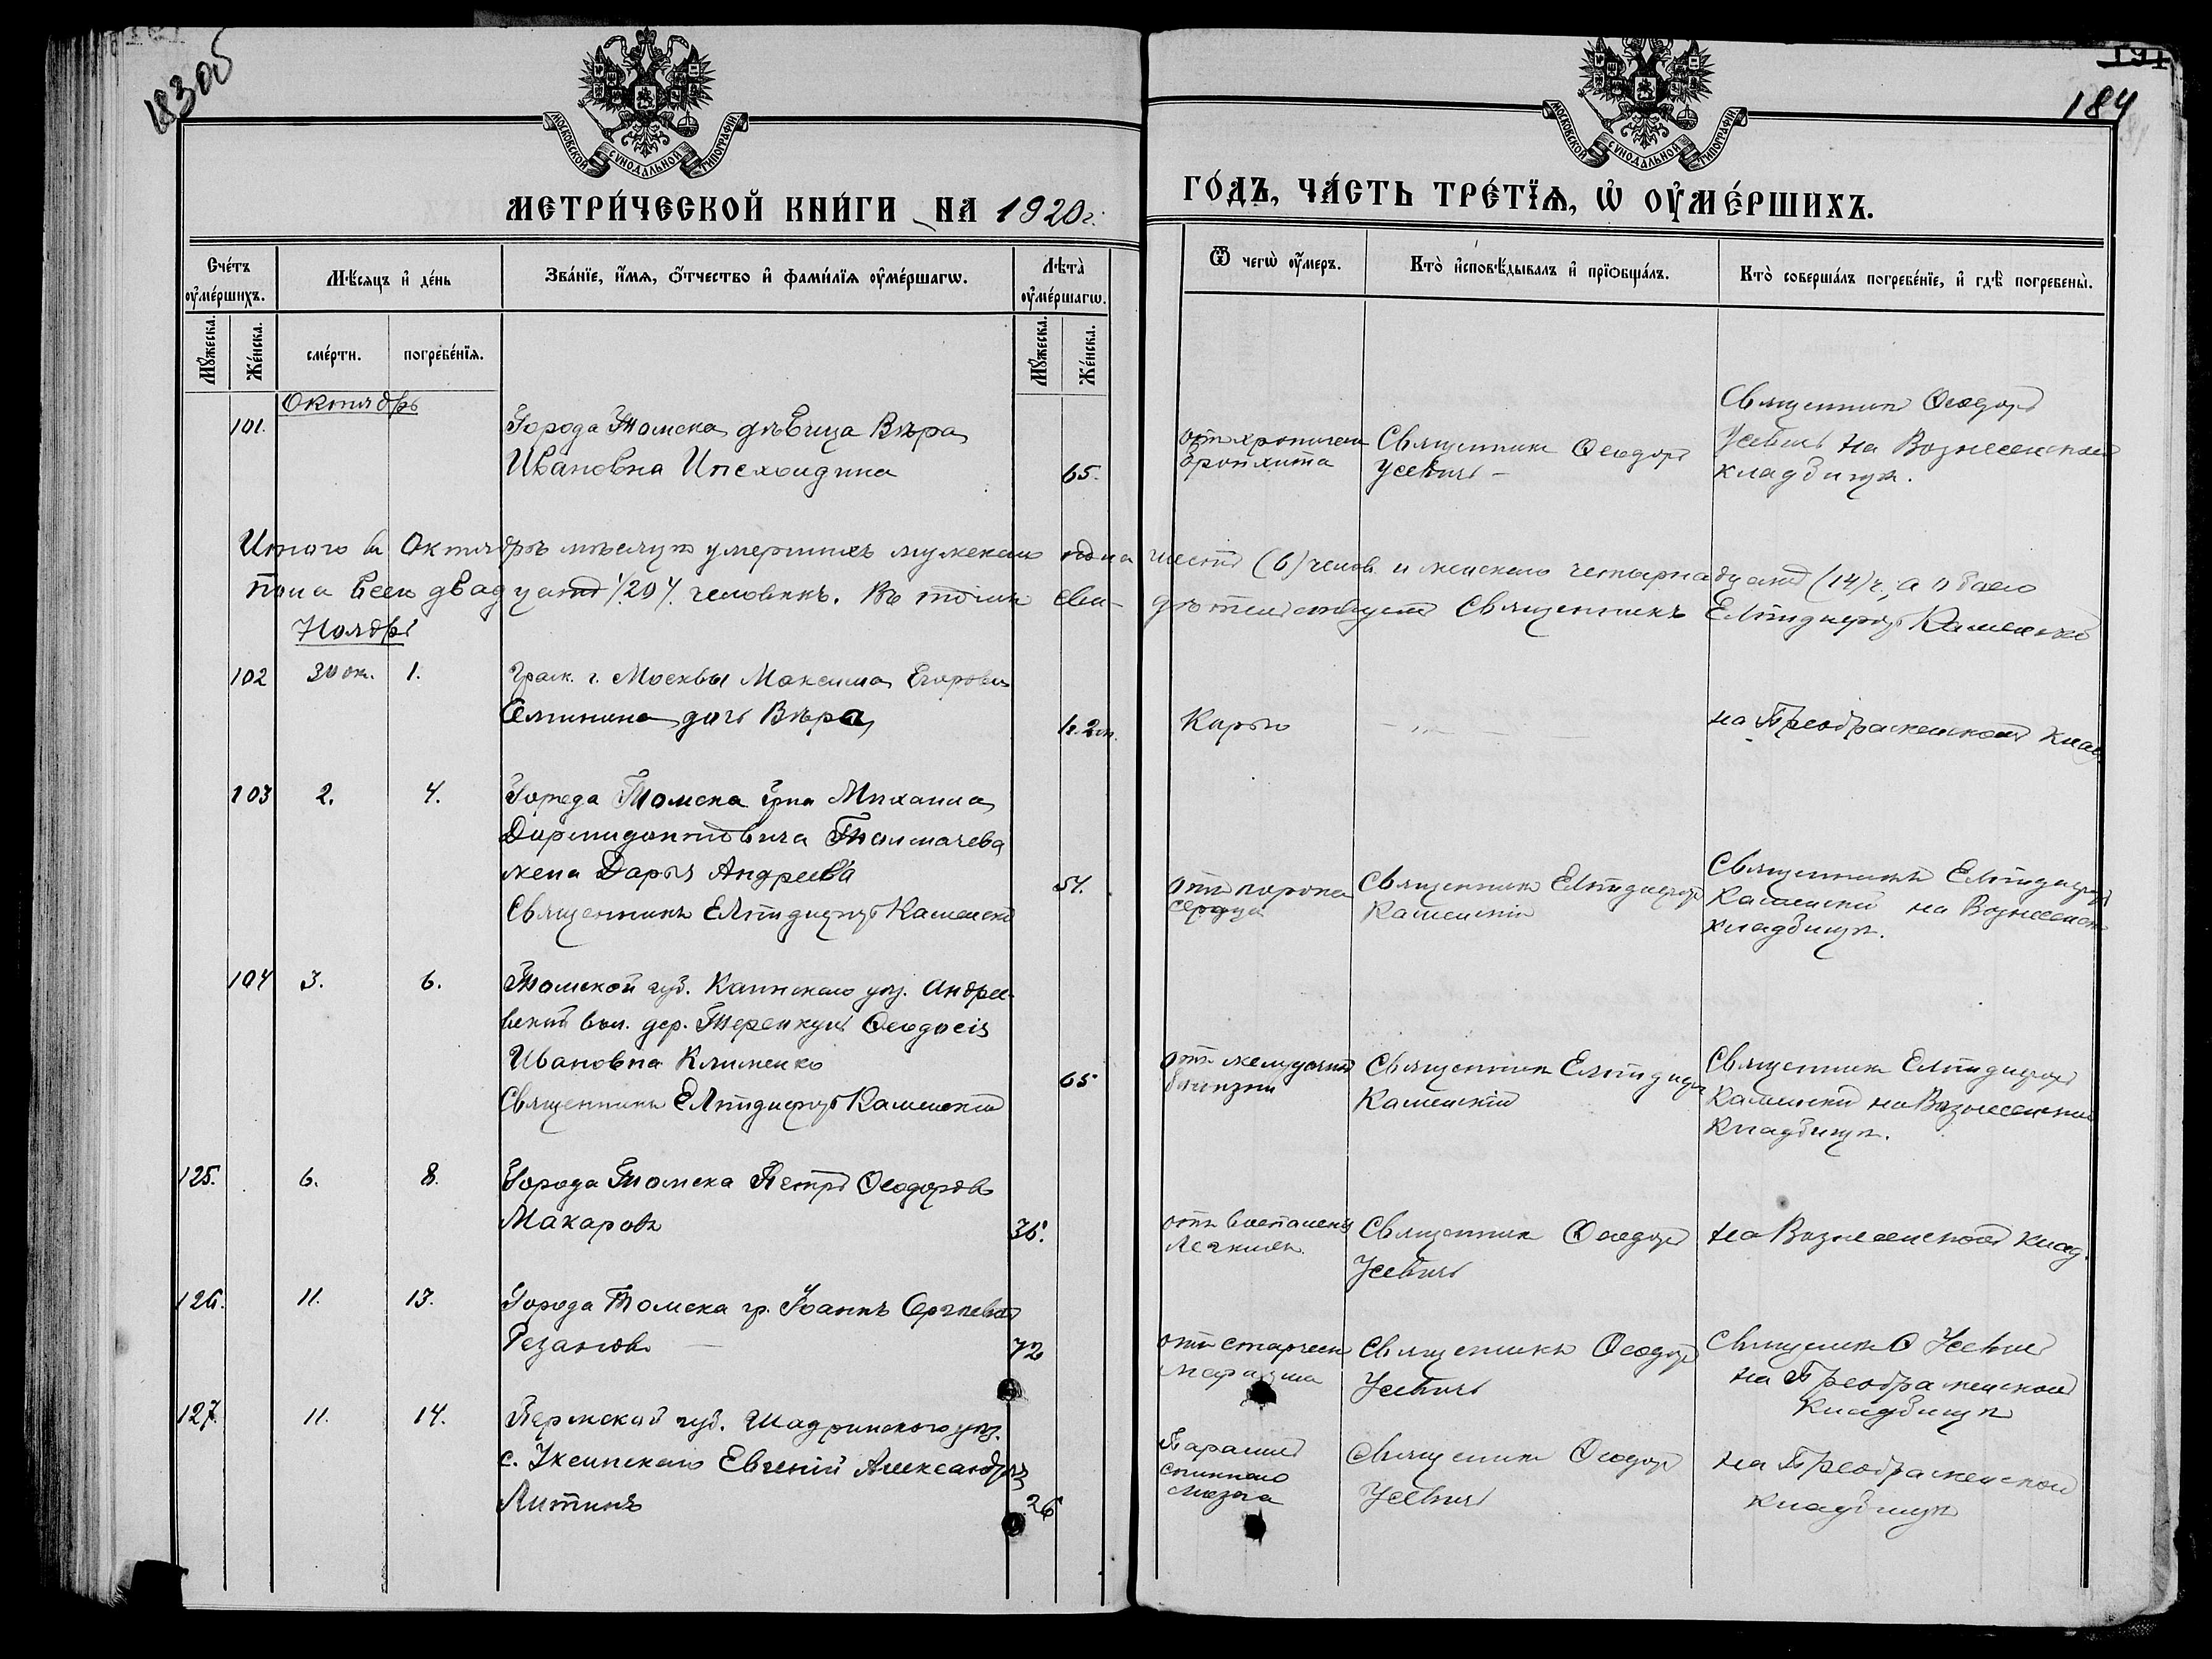 18305
184
МОСКОВСКОЙ СѴНОДАЛЬНОЙ ТИПОГРАФІИ
МОСКОВСКОЙ СѴНОДАЛЬНОЙ ТИПОГРАФІИ
МЕТРИ́ЧЕСКОЙ КНИ́ГИ НА 1920 г.
ГО́ДЪ, ЧА́СТЬ ТРЕ́ТЇѦ, Ѡ҆ ОУ҆МЕ́РШИХЪ.
Сче́тъ оу҆ме́ршихъ.
Мѣ́сяцъ и҆ де́нь
Зва́нїе, и҆́мѧ, ѻ҆́тчество и҆ фами́лїѧ оу҆ме́ршагѡ.
Лѣта̀ оу҆ме́ршагѡ.
Ѿ чегѡ̀ оу҆́меръ.
Кто̀ и҆сповѣ́дывалъ и҆ прїѡбща́лъ.
Кто̀ соверша́лъ погребе́нїе, и҆ гдѣ̀ погребены̀.
Мꙋ́жеска.
Же́нска.
сме́рти.
погребе́нїѧ.
Мꙋ́жеска.
Же́нска.
Октябрь
101.
Города Томска дѣвица Вѣра
Ивановна
65.
отъ хроническ
бронхита
Священникъ Ѳеодоръ
Усевичъ -
Священникъ Ѳеодоръ
Усевичъ на Вознесенской
кладбищѣ.
Итого въ Октябрѣ мѣсяцѣ умершихъ мужеского пола шесть (6) челов. и женского четырнадцать (14) ч, а обоего
пола всего двадцать /20/ человѣкъ. Въ томъ сви- дѣтельствуетъ Священникъ Елпидифоръ Каменскій
Ноябрь
102
30 ок.
1.
Граж. г. Москвы Максима Егорова
дочь Вѣра
1 г. 2 м.
Корью
на Преображенской клад.
103
2.
4.
Города Томска гр-на Михаила
Дормидонтовича Толмачева
жена Дарья Андреева
Священникъ Елпидифоръ Каменскій
51.
отъ порока
сердца
Священникъ Елпидифоръ
Каменскій
Священникъ Елпидифоръ
Каменскій на Вознесенск
кладбищѣ.
104
3.
6.
Томской губ. Каинскаго уѣз. Андреев-
ской вол. дер. Теренкуль Ѳеодосія
Ивановна Клименко
Священникъ Елпидифоръ Каменскій
65
отъ желудочной
болѣзни
Священникъ Елпидифоръ
Каменскій
Священникъ Елпидифоръ
Каменскій на Вознесенской
кладбищѣ.
125.
6.
8.
Города Томска Петръ Ѳеодоровъ
Макаровъ
36.
отъ воспаленія
легкихъ.
Священникъ Ѳеодоръ
Усевичъ
на Вознесенской клад.
126.
11.
13.
Города Томска гр. Іоаннъ Сергѣевъ
Резановъ
72
отъ старческ
маразма
Священникъ Ѳеодоръ
Усевичъ
Священникъ Ѳ Усевичъ
на Преображенской
кладбищѣ
127.
11.
14.
Пермской губ. Шадринского уѣз.
с. Уксянскаго Евгеній Александръ
Литинъ
26
Параличъ
спинного
мозга
Священникъ Ѳеодоръ
Усевичъ
на Преображенской
кладбищѣ